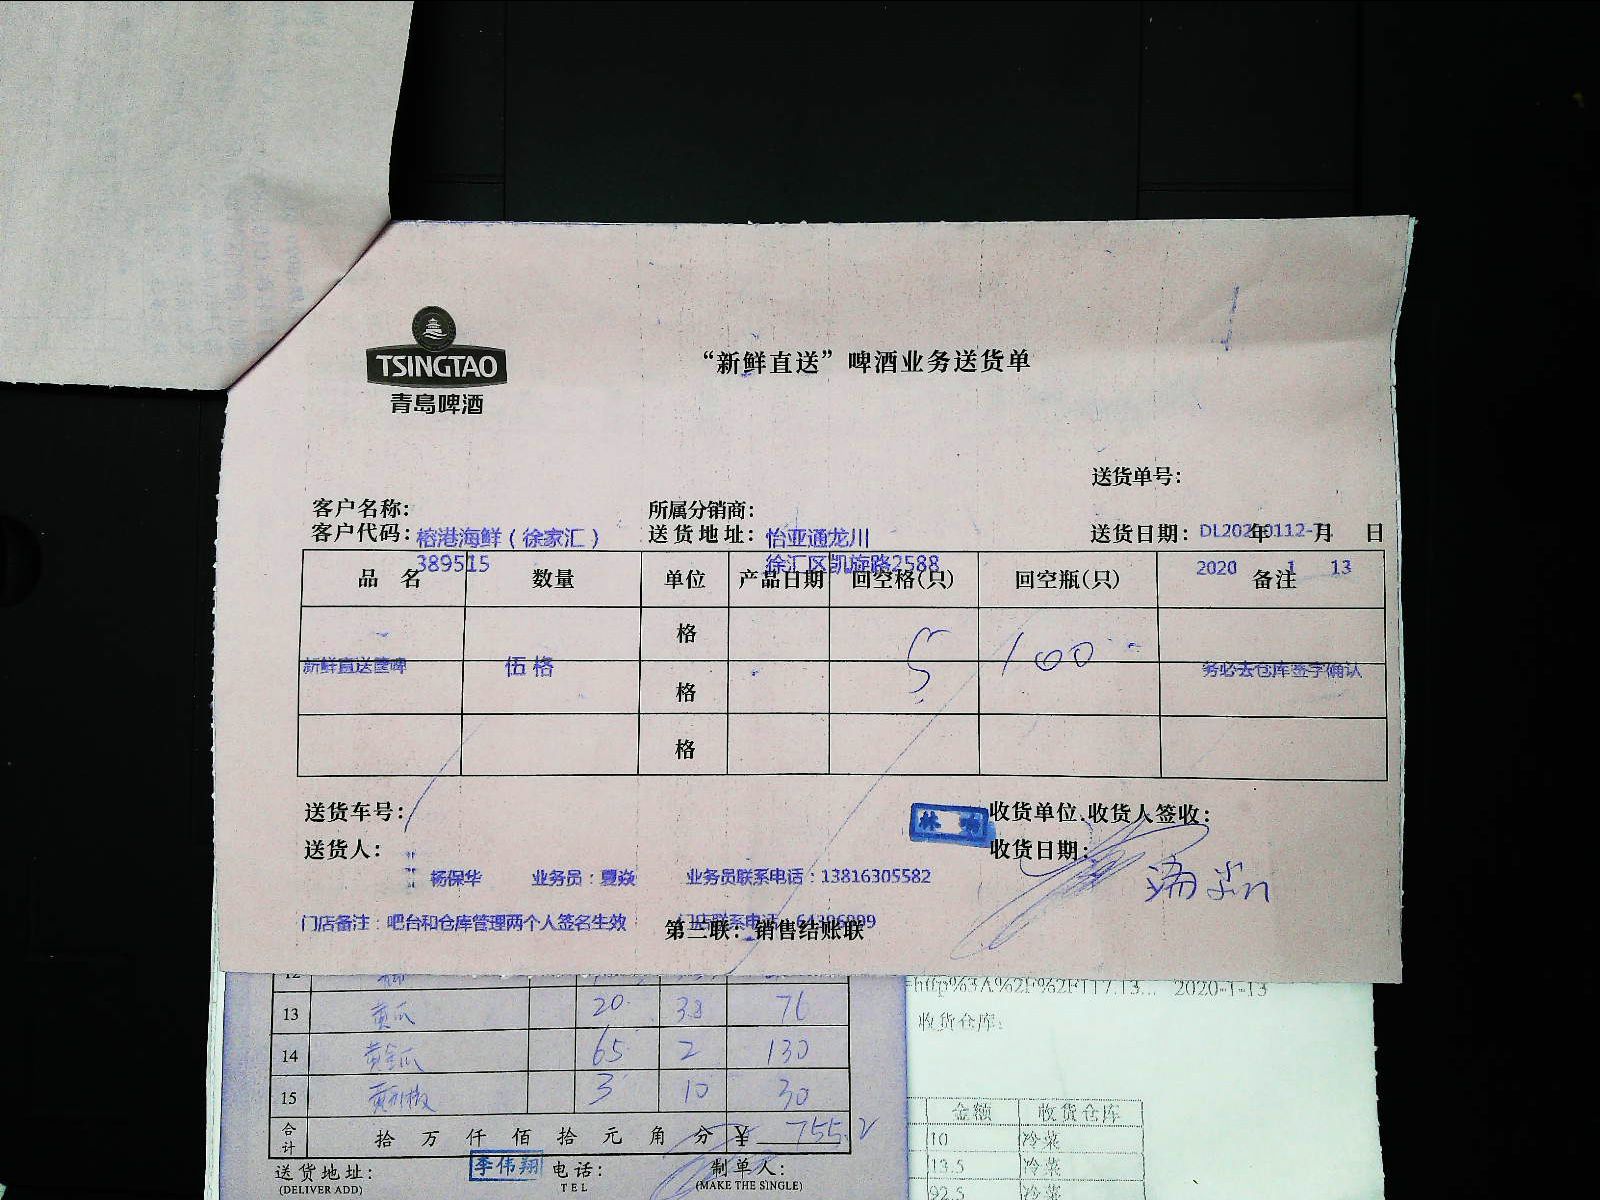 TSINGTAO
青島啤酒
“新鲜直送”啤酒业务送货单
送货单号：
客户名称： 所属分销商：
客户代码： 榕港海鲜（徐家汇） 送货地址： 怡亚通龙川 送货日期： 年 月 日
389515 徐汇区凯旋路2588 2020 1 13
品 名 数量 单位 产品日期 回空格(只) 回空瓶(只) 备注
格
新鲜直送 伍格 5 100 务必去仓库签字确认
格
格
送货车号： 收货单位、收货人签收：
送货人： 收货日期：
杨保华 业务员：夏焱 业务员联系电话：13816305582
门店备注：吧台和仓库管理两个人签名生效 门店联系电话：
第二联：销售结账联
2020-1-13
13 黄瓜 20 3.8 76
收货仓库：
14 黄金瓜 65 2 130
15 3 10 30
金额 收货仓库
合计 拾 万 仟 佰 拾 元 角 分 ¥ 755.2
10 冷菜
13.5 冷菜
送货地址： 李伟翔 电话： 制单人：
(DELIVER ADD) TEL (MAKE THE SINGLE)
92.5 冷菜